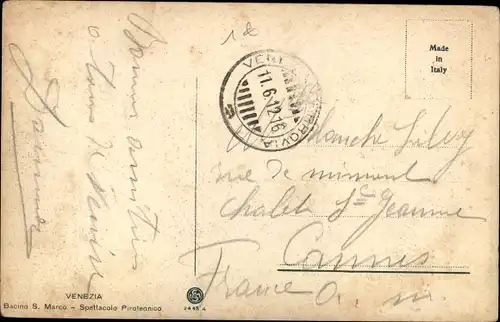 1 £
Made
in
Italy
VENEZIA FERROVIA
11.6.12.16
Bonnes amitiés
de Venise
Blanche
rue de mimont
chalet Ste Jeanne
Cannes
France a. m.
VENEZIA
Bacino S. Marco - Spettacolo Pirotecnico
2445 4